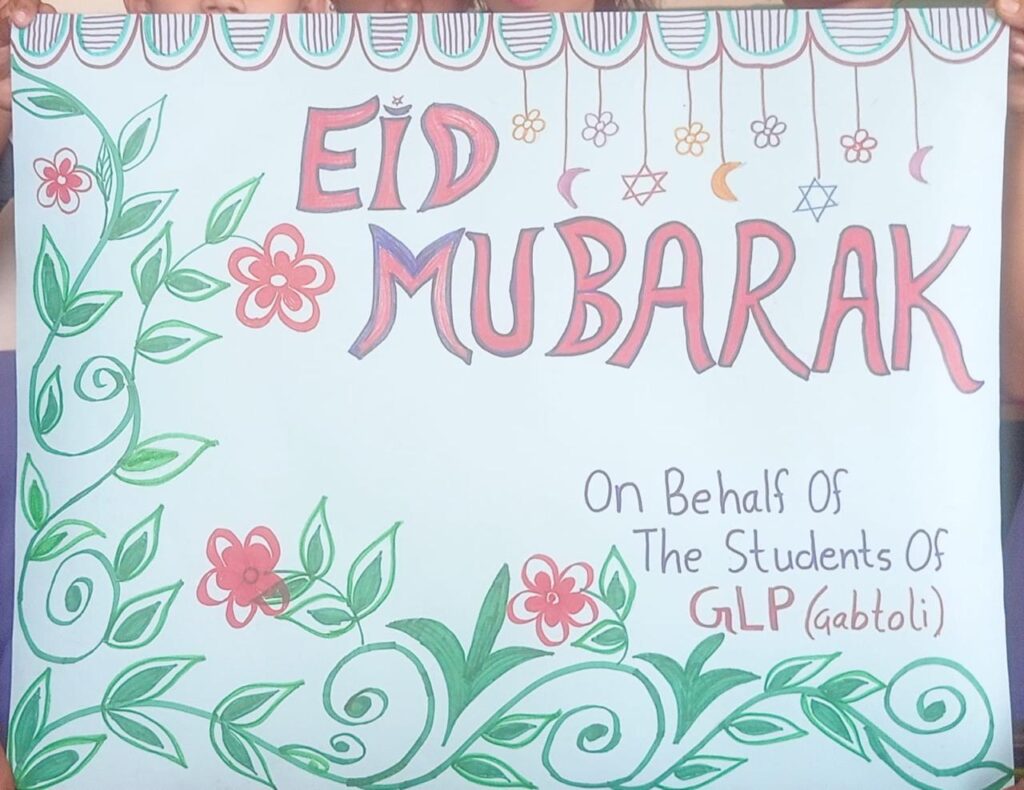 EiD
MUBARAK
On Behalf Of
The Students Of
GLP (Gabtoli)